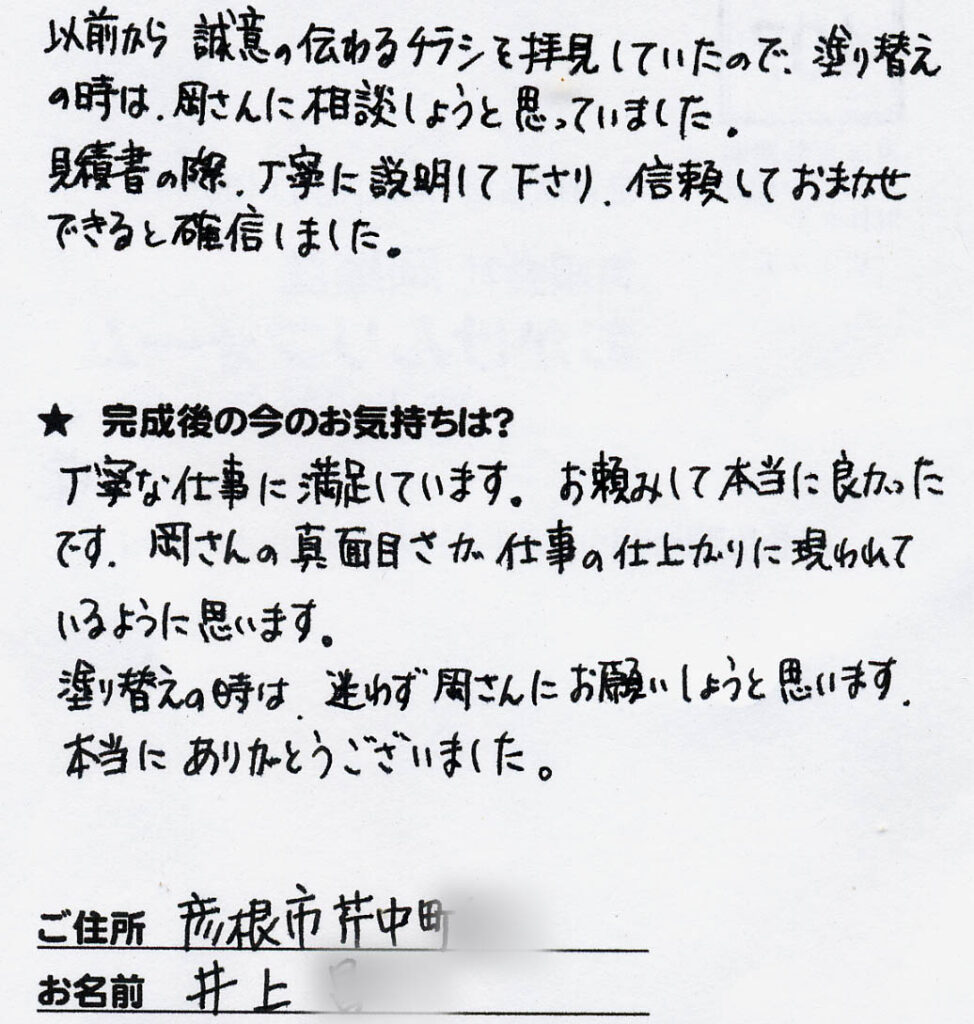 以前から 誠意の伝わるチラシを拝見していたので、塗り替え
の時は、岡さんに相談しようと思っていました。
見積書の際、丁寧に説明して下さり、信頼しておまかせ
できると確信しました。
★ 完成後の今のお気持ちは?
丁寧な仕事に満足しています。お頼みして本当に良かった
です。岡さんの真面目さが仕事の仕上がりに現われて
いるように思います。
塗り替えの時は、迷わず岡さんにお願いしようと思います。
本当にありがとうございました。
ご住所 彦根市芹中町
お名前 井上